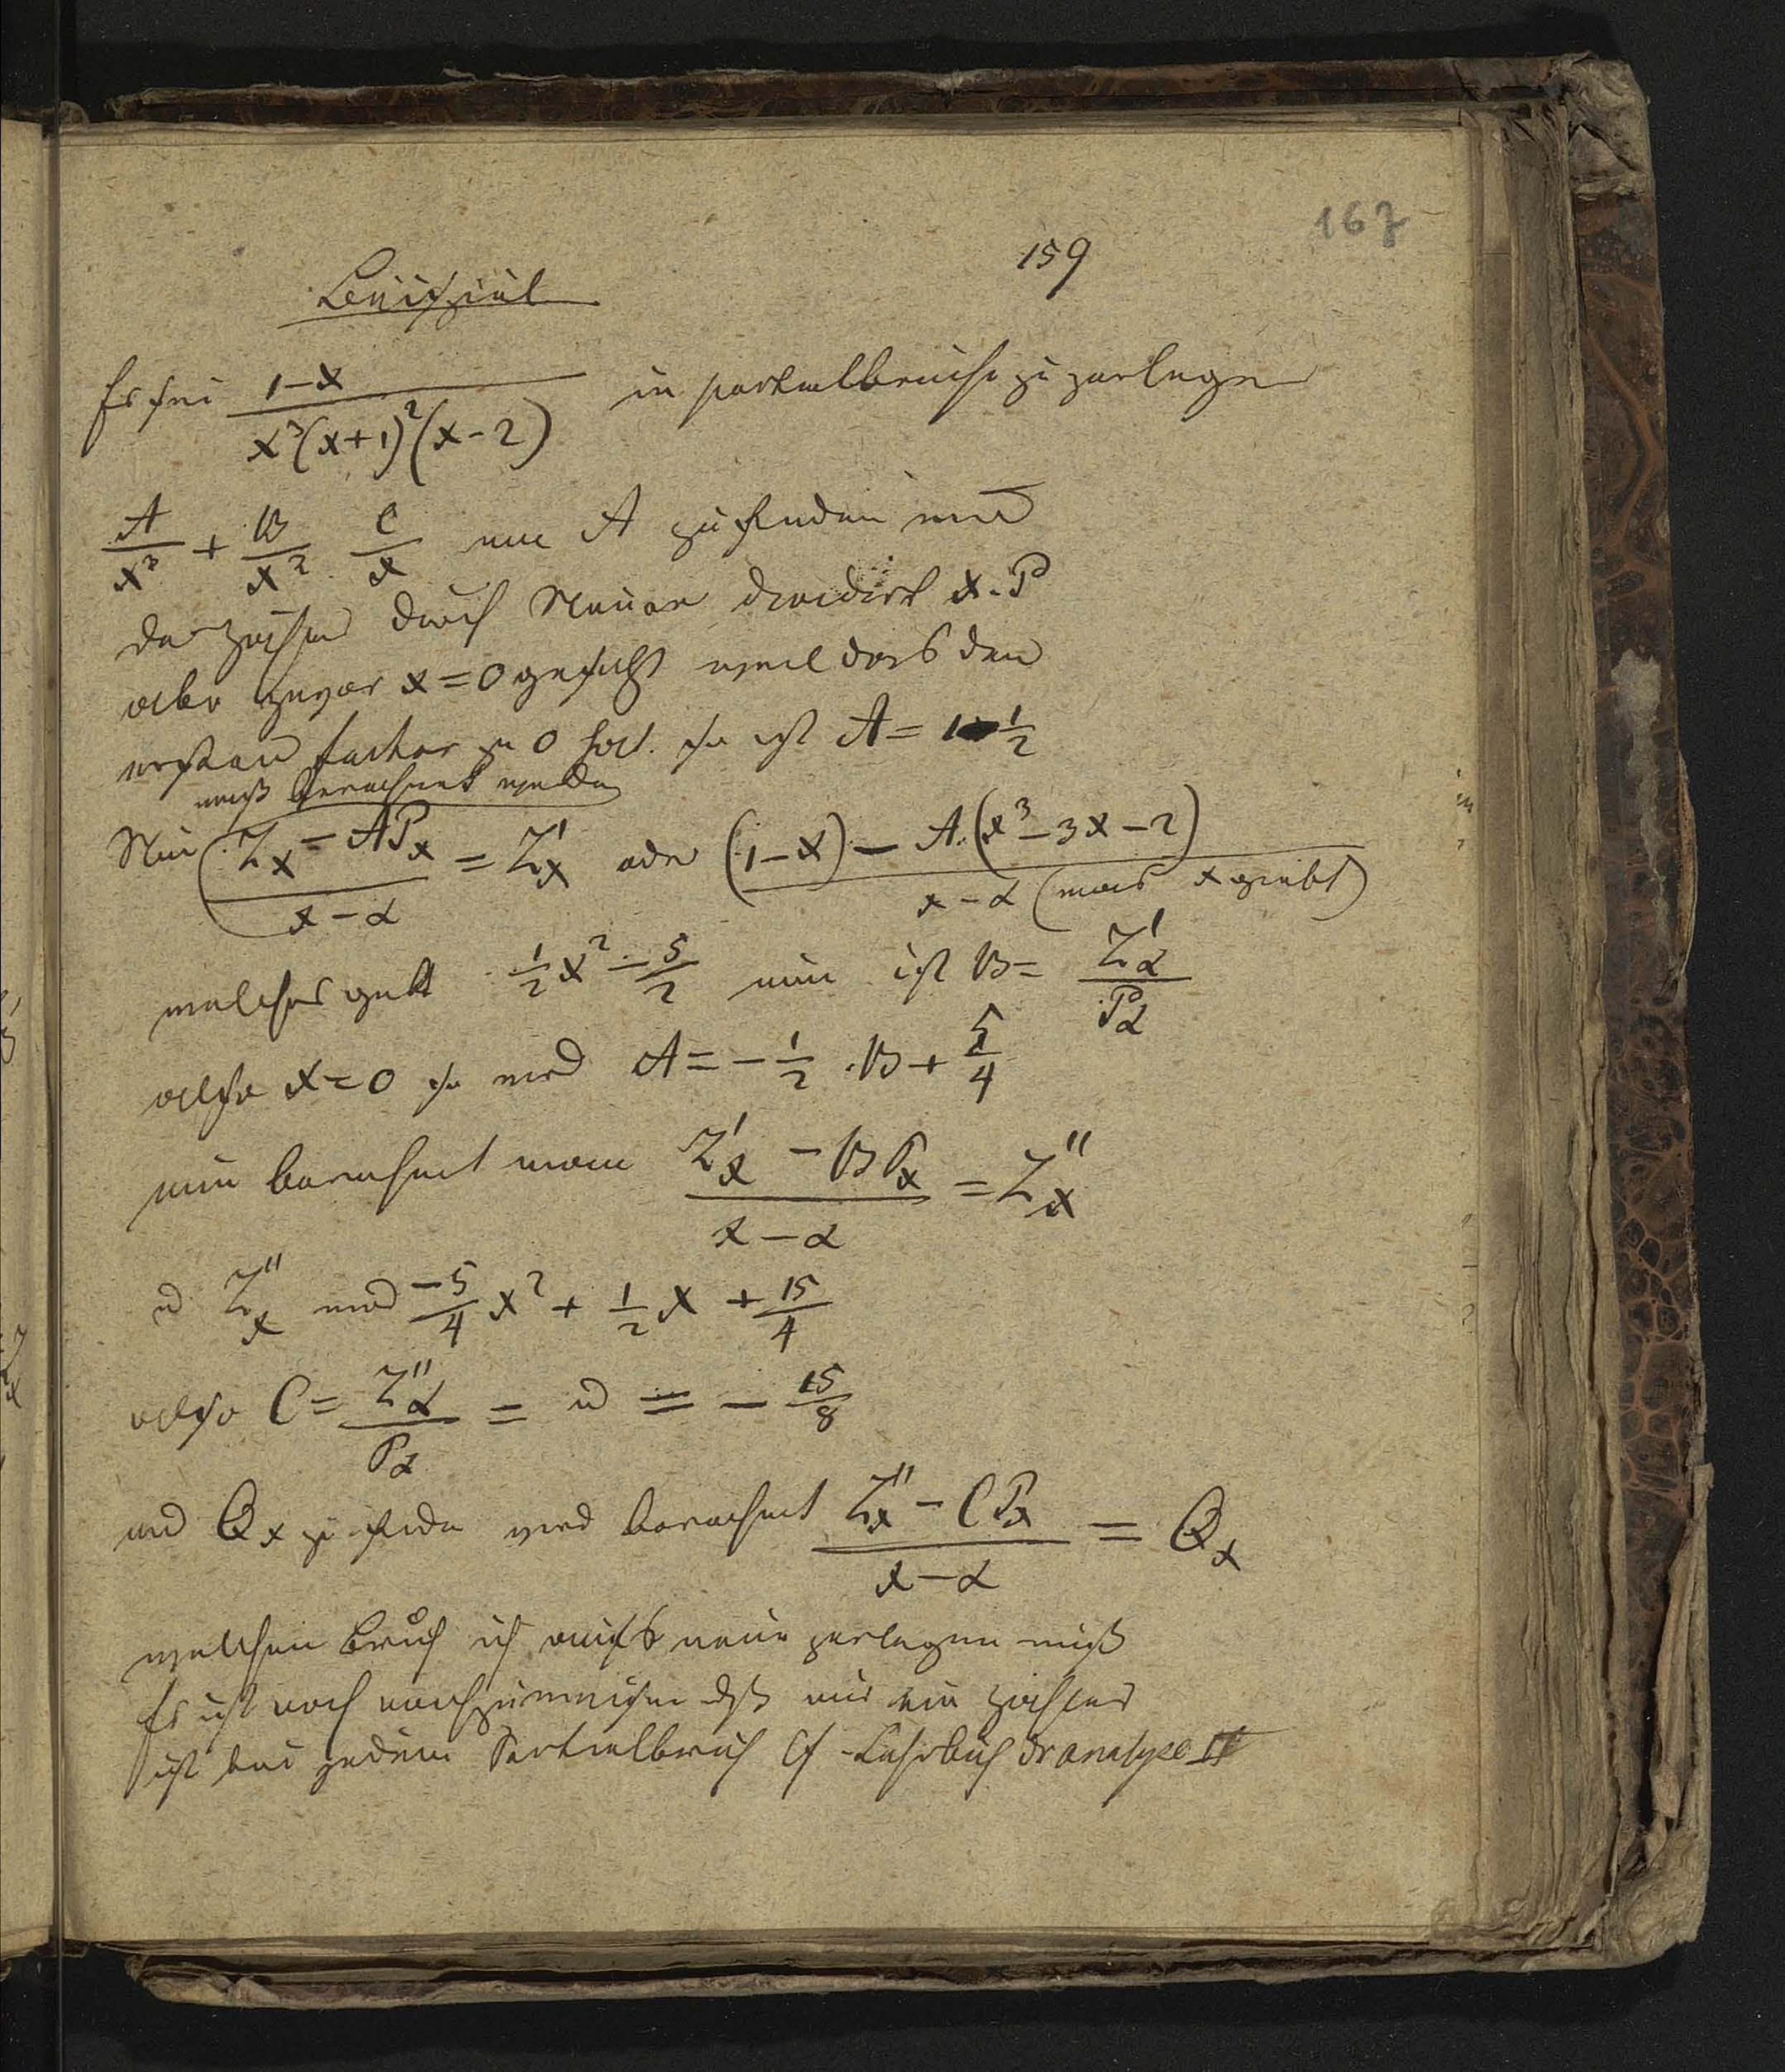 167
159
Beispiel
Es sei (1-x)/(x³(x+1)²(x-2)) in partialbruche zu zerlegen
A/x³ + B/x² C/x um A zu finden wird
der Zähler durch Nenner dividirt x. P
aber zuvor x=0 gesetzt weil das den
ersten factor zu 0 hat. so ist A = 1 1/2
muß berechnet werden
Nun (Zx - APx)/(x-α) = Z'x oder ((1-x) - A.(x³-3x-2))/(x-α (was x giebt)
welches gibt 1/2x² - 5/2 nun ist B = Z'α/Pα
also x=0 so wird A = -1/2 . B + 5/4
nun berechnet man (Z'x - BPx)/(x-α) = Z''x
u Z''x wird -5/4 x² + 1/2 x + 15/4
also C = Z''α/Pα = u = - 15/8
und Qx zu finden wird berechnet (Z''x - CPx)/(x-α) = Qx
welchen Bruch ich aufs neue zerlegen muß
Es ist noch nachzuweisen dß nur ein Zähler
ist bei jedem Partialbruch Cf - Lehrbuch dr analyse II